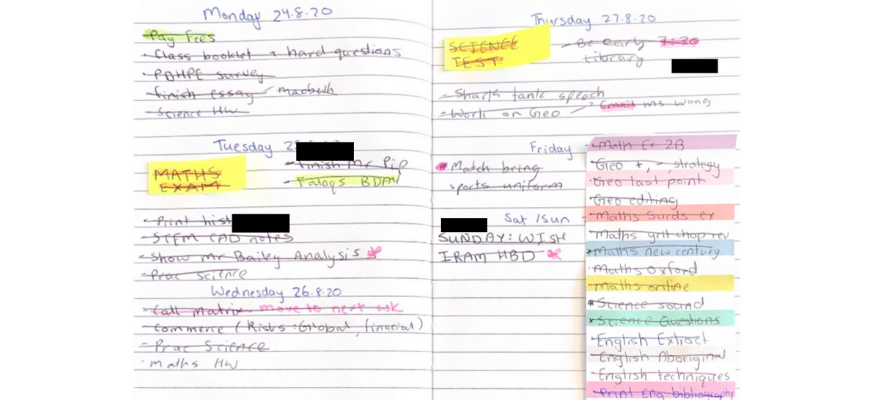 Monday 24.8.20
- Pay fees
- Class booklet + hard questions
- PDHPE survey
- finish essay / macbeth
- Science HW
Tuesday 2
MATHS
EXAM
- finish Mr Pip
- BDAY
- Print hist
- STEM CAD notes
- Show Mr Bailey Analysis
- Prac science
Wednesday 26.8.20
- Call Matrix - move to next wk
- Commerce (Risks: Global, financial)
- Prac Science
- Maths HW
Thursday 27.8.20
SCIENCE
TEST
- Be early 7:30
library
- Shark tank speech
- Work on Geo
Email Ms Wong
Friday
* Match bring
sports uniform
Sat /Sun
SUNDAY: WISH
IRAM HBD
- Math Ex 2B
- Geo + , - strategy
- Geo last point
- Geo editing
- Maths Surds ex
- Maths yr11 chap rev
- Maths new century
- Maths Oxford
- Maths online
* Science sound
* Science Questions
- English Extract
- English Aboriginal
- English techniques
- Print Eng bibliography